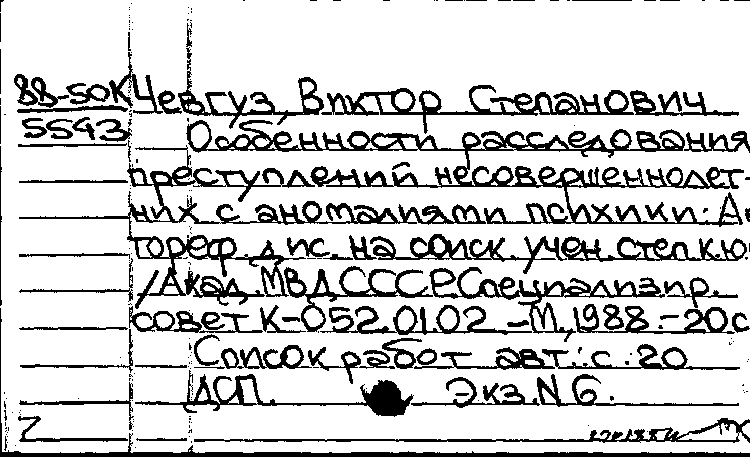 88-50К Чевгуз, Виктор Степанович
5543 Особенности расследования
преступлений несовершеннолет-
них с аномалиями психики: Ав
тореф. дис. на соиск. учен. степ. к.ю.
/Акад. МВД СССР. Специализир.
совет К-052.01.02 – М., 1988. – 20с
Список работ авт.: с. 20
ДСП. Экз. N 6.